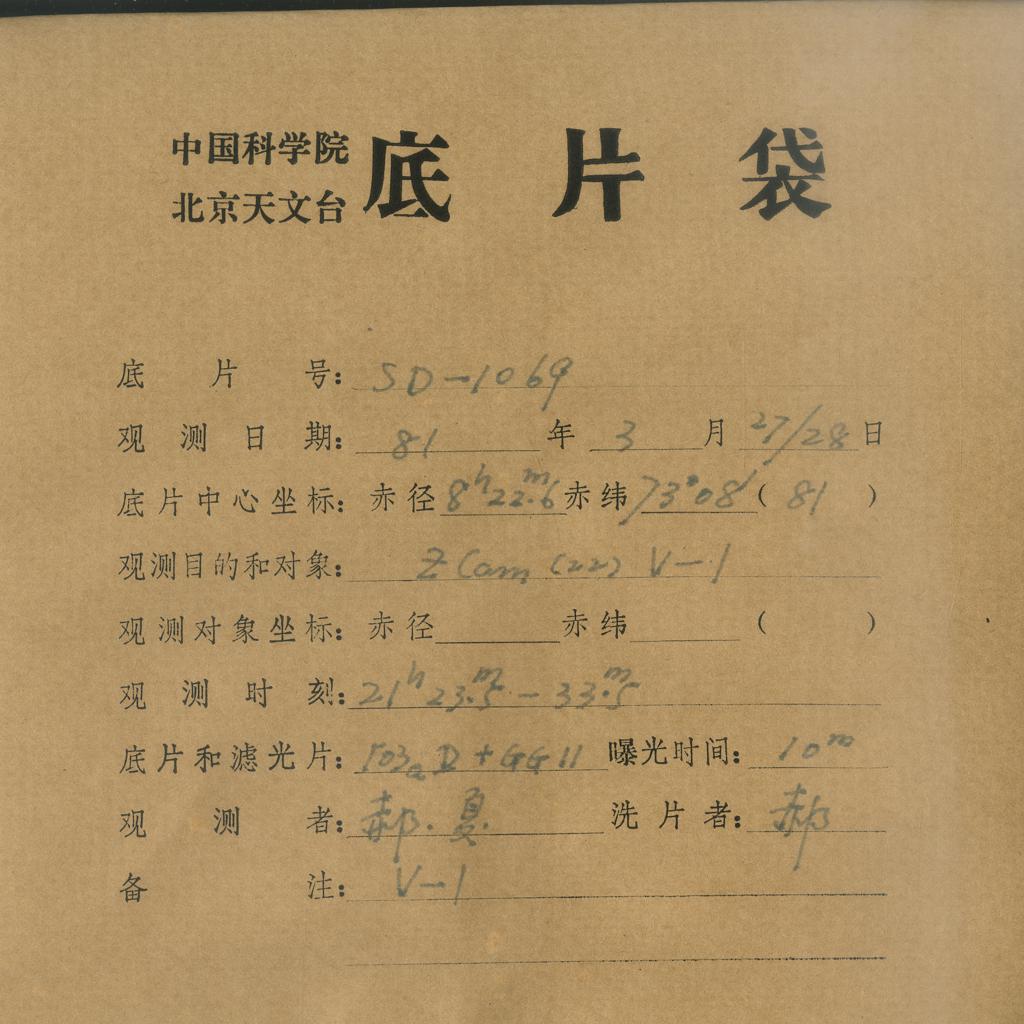 中国科学院
北京天文台
底片袋
底片号: SD-1069
观测日期: 81年3月27/28日
底片中心坐标: 赤径8h22m.6赤纬73°08′(81)
观测目的和对象: Z Cam (22) V-1
观测对象坐标: 赤径 赤纬 ( )
观测时刻: 21h23m.5-33m.5
底片和滤光片: 103aD+GG11 曝光时间: 10m
观测者: 郝.夏. 洗片者: 郝
备注: V-1